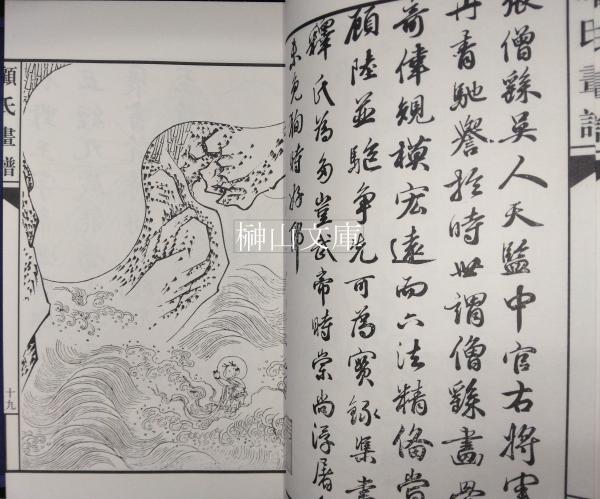 氏畫譜
張僧繇吳人天監中官右將軍
丹青馳譽於時世謂僧繇畫骨
奇偉規模宏遠而六法精備當
顧陸並驅爭先可為寶錄集畫
釋氏為多豈武帝時崇尚浮屠
未免徇時好耶
顧氏畫譜
十九
榊山文庫